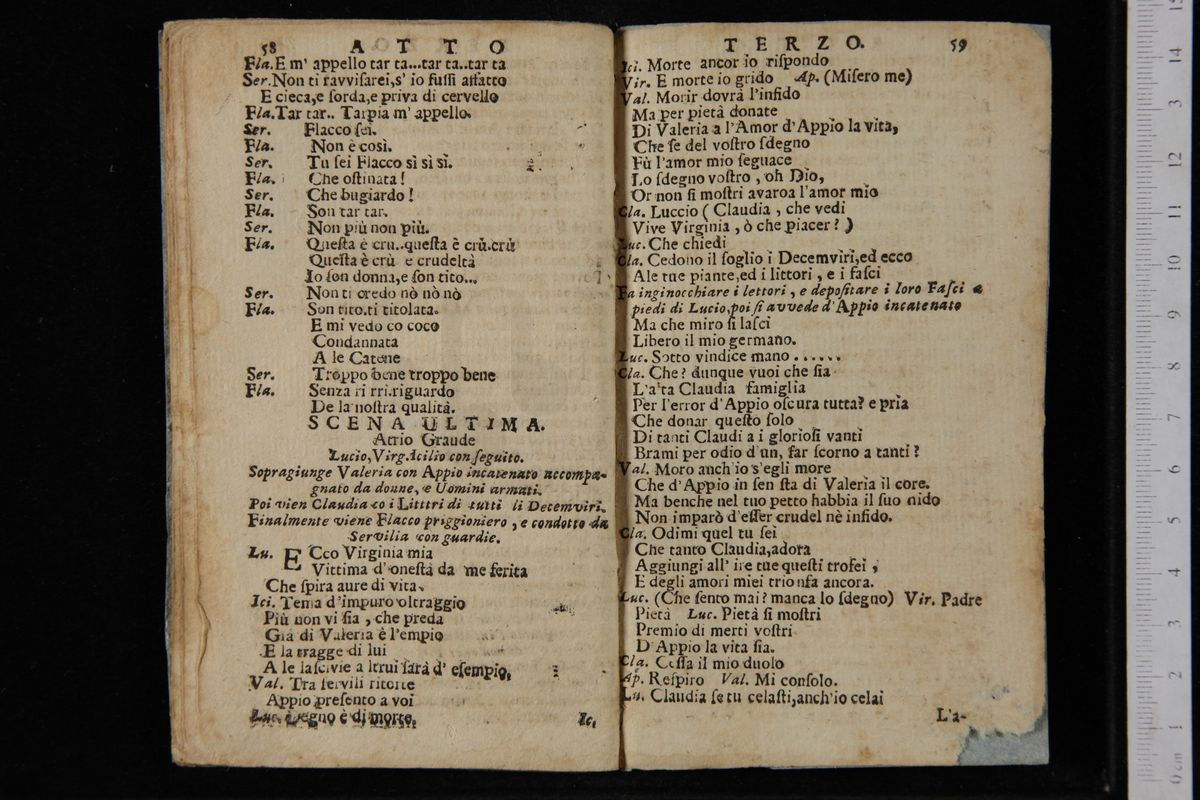 58 ATTO
Fla. E m' appello tar ta...tar ta..tar ta
Ser. Non ti ravviſarei,s' io fuſſi affatto
E cieca,e ſorda,e priva di cervello
Fla. Tar tar.. Tarpia m' appello.
Ser. Flacco ſei.
Fla. Non è così.
Ser. Tu ſei Flacco sì sì sì.
Fla. Che oſtinata !
Ser. Che bugiardo !
Fla. Son tar tar.
Ser. Non più non più.
Fla. Queſta è cru..queſta è crù.crù
Queſta è crù e crudeltà
Io ſon donna,e ſon tito...
Ser. Non ti credo nò nò nò
Fla. Son tito.ti titolata.
E mi vedo co coco
Condannata
A le Catene
Ser. Troppo bene troppo bene
Fla. Senza ri rri.riguardo
De la noſtra qualità.
SCENA ULTIMA.
Atrio Graude
Lucio,Virg.Icilio con ſeguito.
Sopragiunge Valeria con Appio incatenato accompa-
gnato da donne, e Uomini armati.
Poi vien Claudia co i Litttri di tutti li Decemviri.
Finalmente viene Flacco priggioniero , e condotto da
Servilia con guardie.
Lu. ECco Virginia mia
Vittima d'oneſtà da me ferita
Che ſpira aure di vita.
Ici. Tema d'impuro oltraggio
Più non vi ſia , che preda
Già di Valeria è l'empio
E la tragge di lui
A le laſcivie altrui ſarà d' eſempio,
Val. Tra ſervili ritorte
Appio preſento a voi
Luc. è degno è di morte. Ic,
TERZO. 59
Ici. Morte ancor io riſpondo
Vir. E morte io grido Ap. (Miſero me)
Val. Morir dovrà l'infido
Ma per pietà donate
Di Valeria a l'Amor d'Appio la vita,
Che ſe del voſtro ſdegno
Fù l'amor mio ſeguace
Lo ſdegno voſtro , oh Dio,
Or non ſi moſtri avaroa l'amor mio
Cla. Luccio ( Claudia , che vedi
Vive Virginia , ò che piacer ? )
Luc. Che chiedi
Cla. Cedono il ſoglio i Decemviri,ed ecco
Ale tue piante,ed i littori , e i faſci
Fa inginocchiare i lettori , e depoſitare i loro Faſci a
piedi di Lucio,poi ſi avvede d'Appio incatenato
Ma che miro ſi laſci
Libero il mio germano.
Luc. Sotto vindice mano . . . . . .
Cla. Che ? dunque vuoi che ſia
L'alta Claudia famiglia
Per l'error d'Appio oſcura tutta? e pria
Che donar queſto ſolo
Di tanti Claudi a i glorioſi vanti
Brami per odio d'un, far ſcorno a tanti ?
Val. Moro anch'io s'egli more
Che d'Appio in ſen ſta di Valeria il core.
Ma benche nel tuo petto habbia il ſuo nido
Non imparò d'eſſer crudel nè infido.
Cla. Odimi quel tu ſei
Che tanto Claudia,adora
Aggiungi all' ire tue queſti trofei ,
E degli amori miei trionfa ancora.
Luc. (Che ſento mai ? manca lo ſdegno) Vir. Padre
Pietà Luc. Pietà ſi moſtri
Premio di merti voſtri
D'Appio la vita ſia.
Cla. Ceſſa il mio duolo
Ap. Reſpiro Val. Mi conſolo.
Lu. Claudia ſe tu celaſti,anch'io celai
L'a-